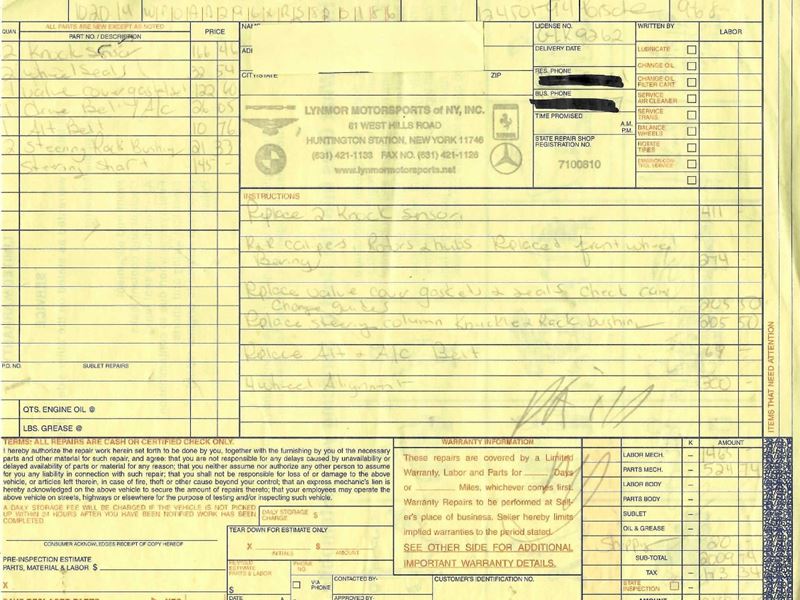 94 Porsche 968
ALL PARTS ARE NEW EXCEPT AS NOTED
QUAN. PART NO. / DESCRIPTION PRICE
2 Knock Sensor 166 46
2 wheel Seals 32 54
1 valve cover gasket set 122 60
1 Drive Belt A/C 26 05
1 Alt Belt 10 76
2 Steering Rack Bushing 21 33
Steering Shaft 145 -
P.O. NO. SUBLET REPAIRS
QTS. ENGINE OIL @
LBS. GREASE @
NAME
ADI
CITY/STATE ZIP
LICENSE NO.
DELIVERY DATE
RES. PHONE
BUS. PHONE
TIME PROMISED
A.M.
P.M.
STATE REPAIR SHOP
REGISTRATION NO.
7100810
LYNMOR MOTORSPORTS of NY, INC.
61 WEST HILLS ROAD
HUNTINGTON STATION, NEW YORK 11746
(631) 421-1133 FAX NO. (631) 421-1126
www.lynmormotorsports.net
WRITTEN BY LABOR
LUBRICATE
CHANGE OIL
CHANGE OIL
FILTER CART
SERVICE
AIR CLEANER
SERVICE
TRANS.
BALANCE
WHEELS
ROTATE
TIRES
INSTRUCTIONS
Replace 2 Knock Sensors 411 -
R&R calipers, Rotors & hubs Replaced front wheel
Bearing 274 -
Replace valve cover gaskets & seals check cam
Change guides 205 50
Replace steering column Knuckle & Rack bushing 205 50
Replace Alt & A/C Belt 69 -
4 wheel Alignment 300 -
ITEMS THAT NEED ATTENTION
TERMS: ALL REPAIRS ARE CASH OR CERTIFIED CHECK ONLY.
I hereby authorize the repair work herein set forth to be done by you, together with the furnishing by you of the necessary
parts and other material for such repair, and agree: that you are not responsible for any delays caused by unavailability or
delayed availability of parts or material for any reason; that you neither assume nor authorize any other person to assume
for you any liability in connection with such repair; that you shall not be responsible for loss of or damage to the above
vehicle, or articles left therein, in case of fire, theft or other cause beyond your control; that an express mechanic's lien is
hereby acknowledged on above vehicle to secure the amount of repairs thereto; that your employees may operate the
above vehicle on streets, highways or elsewhere for the purpose of testing and/or inspecting such vehicle.
A DAILY STORAGE FEE WILL BE CHARGED IF THE VEHICLE IS NOT PICKED
UP WITHIN 24 HOURS AFTER YOU HAVE BEEN NOTIFIED WORK HAS BEEN
COMPLETED
DAILY STORAGE
CHARGE $
CONSUMER ACKNOWLEDGES RECEIPT OF COPY HEREOF
PRE-INSPECTION ESTIMATE
PARTS, MATERIAL & LABOR $
X
TEAR DOWN FOR ESTIMATE ONLY
X $
INITIALS AMOUNT
REVISED
ESTIMATE
PARTS & LABOR
$
PHONE
NO.
VIA
PHONE
DATE
CONTACTED BY-
APPROVED BY-
WARRANTY INFORMATION
These repairs are covered by a Limited
Warranty, Labor and Parts for ____ Days
or ____ Miles, whichever comes first.
Warranty Repairs to be performed at Sell-
er's place of business. Seller hereby limits
implied warranties to the period stated.
SEE OTHER SIDE FOR ADDITIONAL
IMPORTANT WARRANTY DETAILS.
CUSTOMER'S IDENTIFICATION NO.
K AMOUNT
LABOR MECH. 1465
PARTS MECH. 524 74
LABOR BODY
PARTS BODY
SUBLET
OIL & GREASE
Shipping 20
SUB-TOTAL 2009 74
TAX 173 34
STATE
INSPECTION
AMOUNT